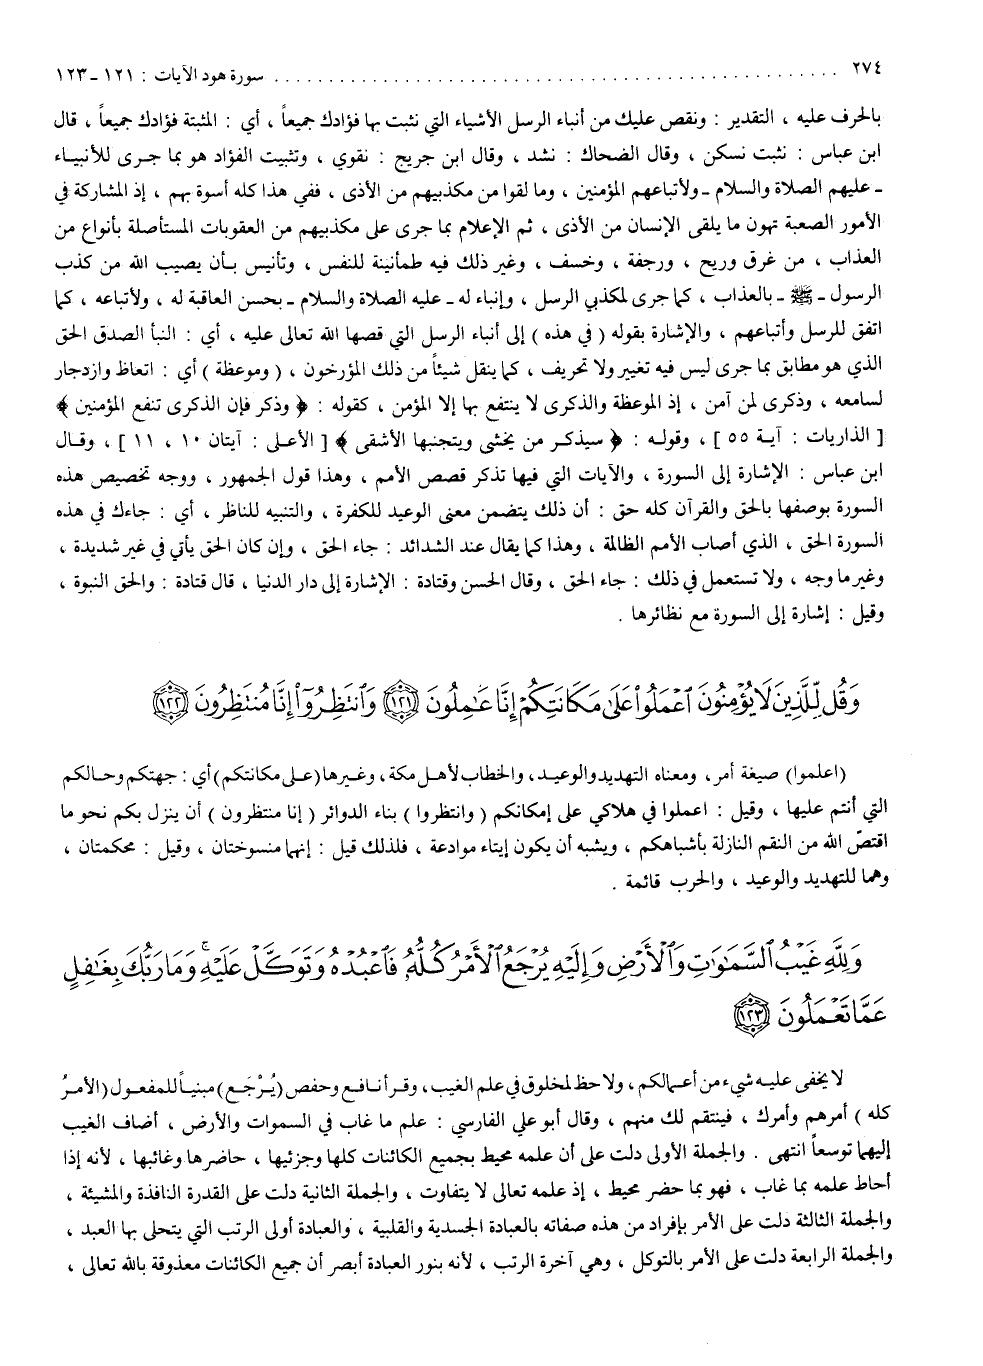 ٢٧٤ . . . . . . . . . . . . . . . . . . . . . . . . . . . . . . . . . . . . . . . . . . . سورة هود الآيات : ١٢١ ـ ١٢٣
بالحرف عليه ، التقدير : ونقص عليك من أنباء الرسل الأشياء التي نثبت بها فؤادك جميعاً ، أي : المثبتة فؤادك جميعاً ، قال
ابن عباس : نثبت نسكن ، وقال الضحاك : نشد ، وقال ابن جريج : نقوي ، وتثبيت الفؤاد هو بما جرى للأنبياء
ـ عليهم الصلاة والسلام ـ ولأتباعهم المؤمنين ، وما لقوا من مكذبيهم من الأذى ، ففي هذا كله أسوة بهم ، إذ المشاركة في
الأمور الصعبة تهون ما يلقى الإنسان من الأذى ، ثم الإعلام بما جرى على مكذبيهم من العقوبات المستأصلة بأنواع من
العذاب ، من غرق وريح ، ورجفة ، وخسف ، وغير ذلك فيه طمأنينة للنفس ، وتأنيس بأن يصيب الله من كذب
الرسول ـ ﷺ ـ بالعذاب ، كما جرى لمكذبي الرسل ، وإنباء له ـ عليه الصلاة والسلام ـ بحسن العاقبة له ، ولأتباعه ، كما
اتفق للرسل وأتباعهم ، والإشارة بقوله ( في هذه ) إلى أنباء الرسل التي قصها الله تعالى عليه ، أي : النبأ الصدق الحق
الذي هو مطابق بما جرى ليس فيه تغيير ولا تحريف ، كما ينقل شيئاً من ذلك المؤرخون ، ( وموعظة ) أي : اتعاظ وازدجار
لسامعه ، وذكرى لمن آمن ، إذ الموعظة والذكرى لا ينتفع بها إلا المؤمن ، كقوله : ﴿ وذكر فإن الذكرى تنفع المؤمنين ﴾
[ الذاريات : آية ٥٥ ] ، وقوله : ﴿ سيذكر من يخشى ويتجنبها الأشقى ﴾ [ الأعلى : آيتان ١٠ ، ١١ ] ، وقال
ابن عباس : الإشارة إلى السورة ، والآيات التي فيها تذكر قصص الأمم ، وهذا قول الجمهور ، ووجه تخصيص هذه
السورة بوصفها بالحق والقرآن كله حق : أن ذلك يتضمن معنى الوعيد للكفرة ، والتنبيه للناظر ، أي : جاءك في هذه
السورة الحق ، الذي أصاب الأمم الظالمة ، وهذا كما يقال عند الشدائد : جاء الحق ، وإن كان الحق يأتي في غير شديدة ،
وغير ما وجه ، ولا تستعمل في ذلك : جاء الحق ، وقال الحسن وقتادة : الإشارة إلى دار الدنيا ، قال قتادة : والحق النبوة ،
وقيل : إشارة إلى السورة مع نظائرها .
وَقُل لِّلَّذِينَ لَا يُؤْمِنُونَ ٱعْمَلُوا۟ عَلَىٰ مَكَانَتِكُمْ إِنَّا عَـٰمِلُونَ ١٢١ وَٱنتَظِرُوٓا۟ إِنَّا مُنتَظِرُونَ ١٢٢
(اعلموا) صيغة أمر، ومعناه التهديد والوعيد، والخطاب لأهل مكة، وغيرها (على مكانتكم) أي : جهتكم وحالكم
التي أنتم عليها ، وقيل : اعملوا في هلاكي على إمكانكم ( وانتظروا ) بناء الدوائر ( إنا منتظرون ) أن ينزل بكم نحو ما
اقتصّ الله من النقم النازلة بأشباهكم ، ويشبه أن يكون إيتاء موادعة ، فلذلك قيل : إنهما منسوختان ، وقيل : محكمتان ،
وهما للتهديد والوعيد ، والحرب قائمة .
وَلِلَّهِ غَيْبُ ٱلسَّمَـٰوَٰتِ وَٱلْأَرْضِ وَإِلَيْهِ يُرْجَعُ ٱلْأَمْرُ كُلُّهُۥ فَٱعْبُدْهُ وَتَوَكَّلْ عَلَيْهِ ۚ وَمَا رَبُّكَ بِغَـٰفِلٍ
عَمَّا تَعْمَلُونَ ١٢٣
لا يخفى عليه شيء من أعمالكم، ولا حظ لمخلوق في علم الغيب، وقرأ نافع وحفص (يُرْجَع) مبنياً للمفعول (الأمرُ
كله ) أمرهم وأمرك ، فينتقم لك منهم ، وقال أبو علي الفارسي : علم ما غاب في السموات والأرض ، أضاف الغيب
إليهما توسعاً انتهى . والجملة الأولى دلت على أن علمه محيط بجميع الكائنات كلها وجزئيها ، حاضرها وغائبها ، لأنه إذا
أحاط علمه بما غاب ، فهو بما حضر محيط ، إذ علمه تعالى لا يتفاوت ، والجملة الثانية دلت على القدرة النافذة والمشيئة ،
والجملة الثالثة دلت على الأمر بإفراد من هذه صفاته بالعبادة الجسدية والقلبية ، والعبادة أولى الرتب التي يتحلى بها العبد ،
والجملة الرابعة دلت على الأمر بالتوكل ، وهي آخرة الرتب ، لأنه بنور العبادة أبصر أن جميع الكائنات معذوقة بالله تعالى ،